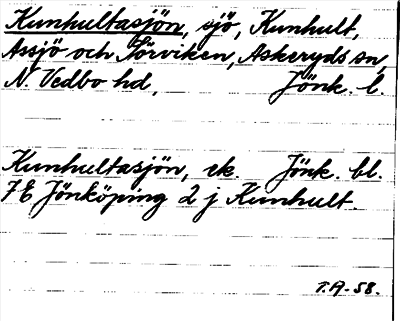 Kunhultasjön, sjö, Kunhult,
Assjö och Sörviken, Askeryds sn,
N. Vedbo hd, Jönk. l.
Kunhultasjön, ek. Jönk. bl.
7E Jönköping 2 j Kunhult.
T.A-58.